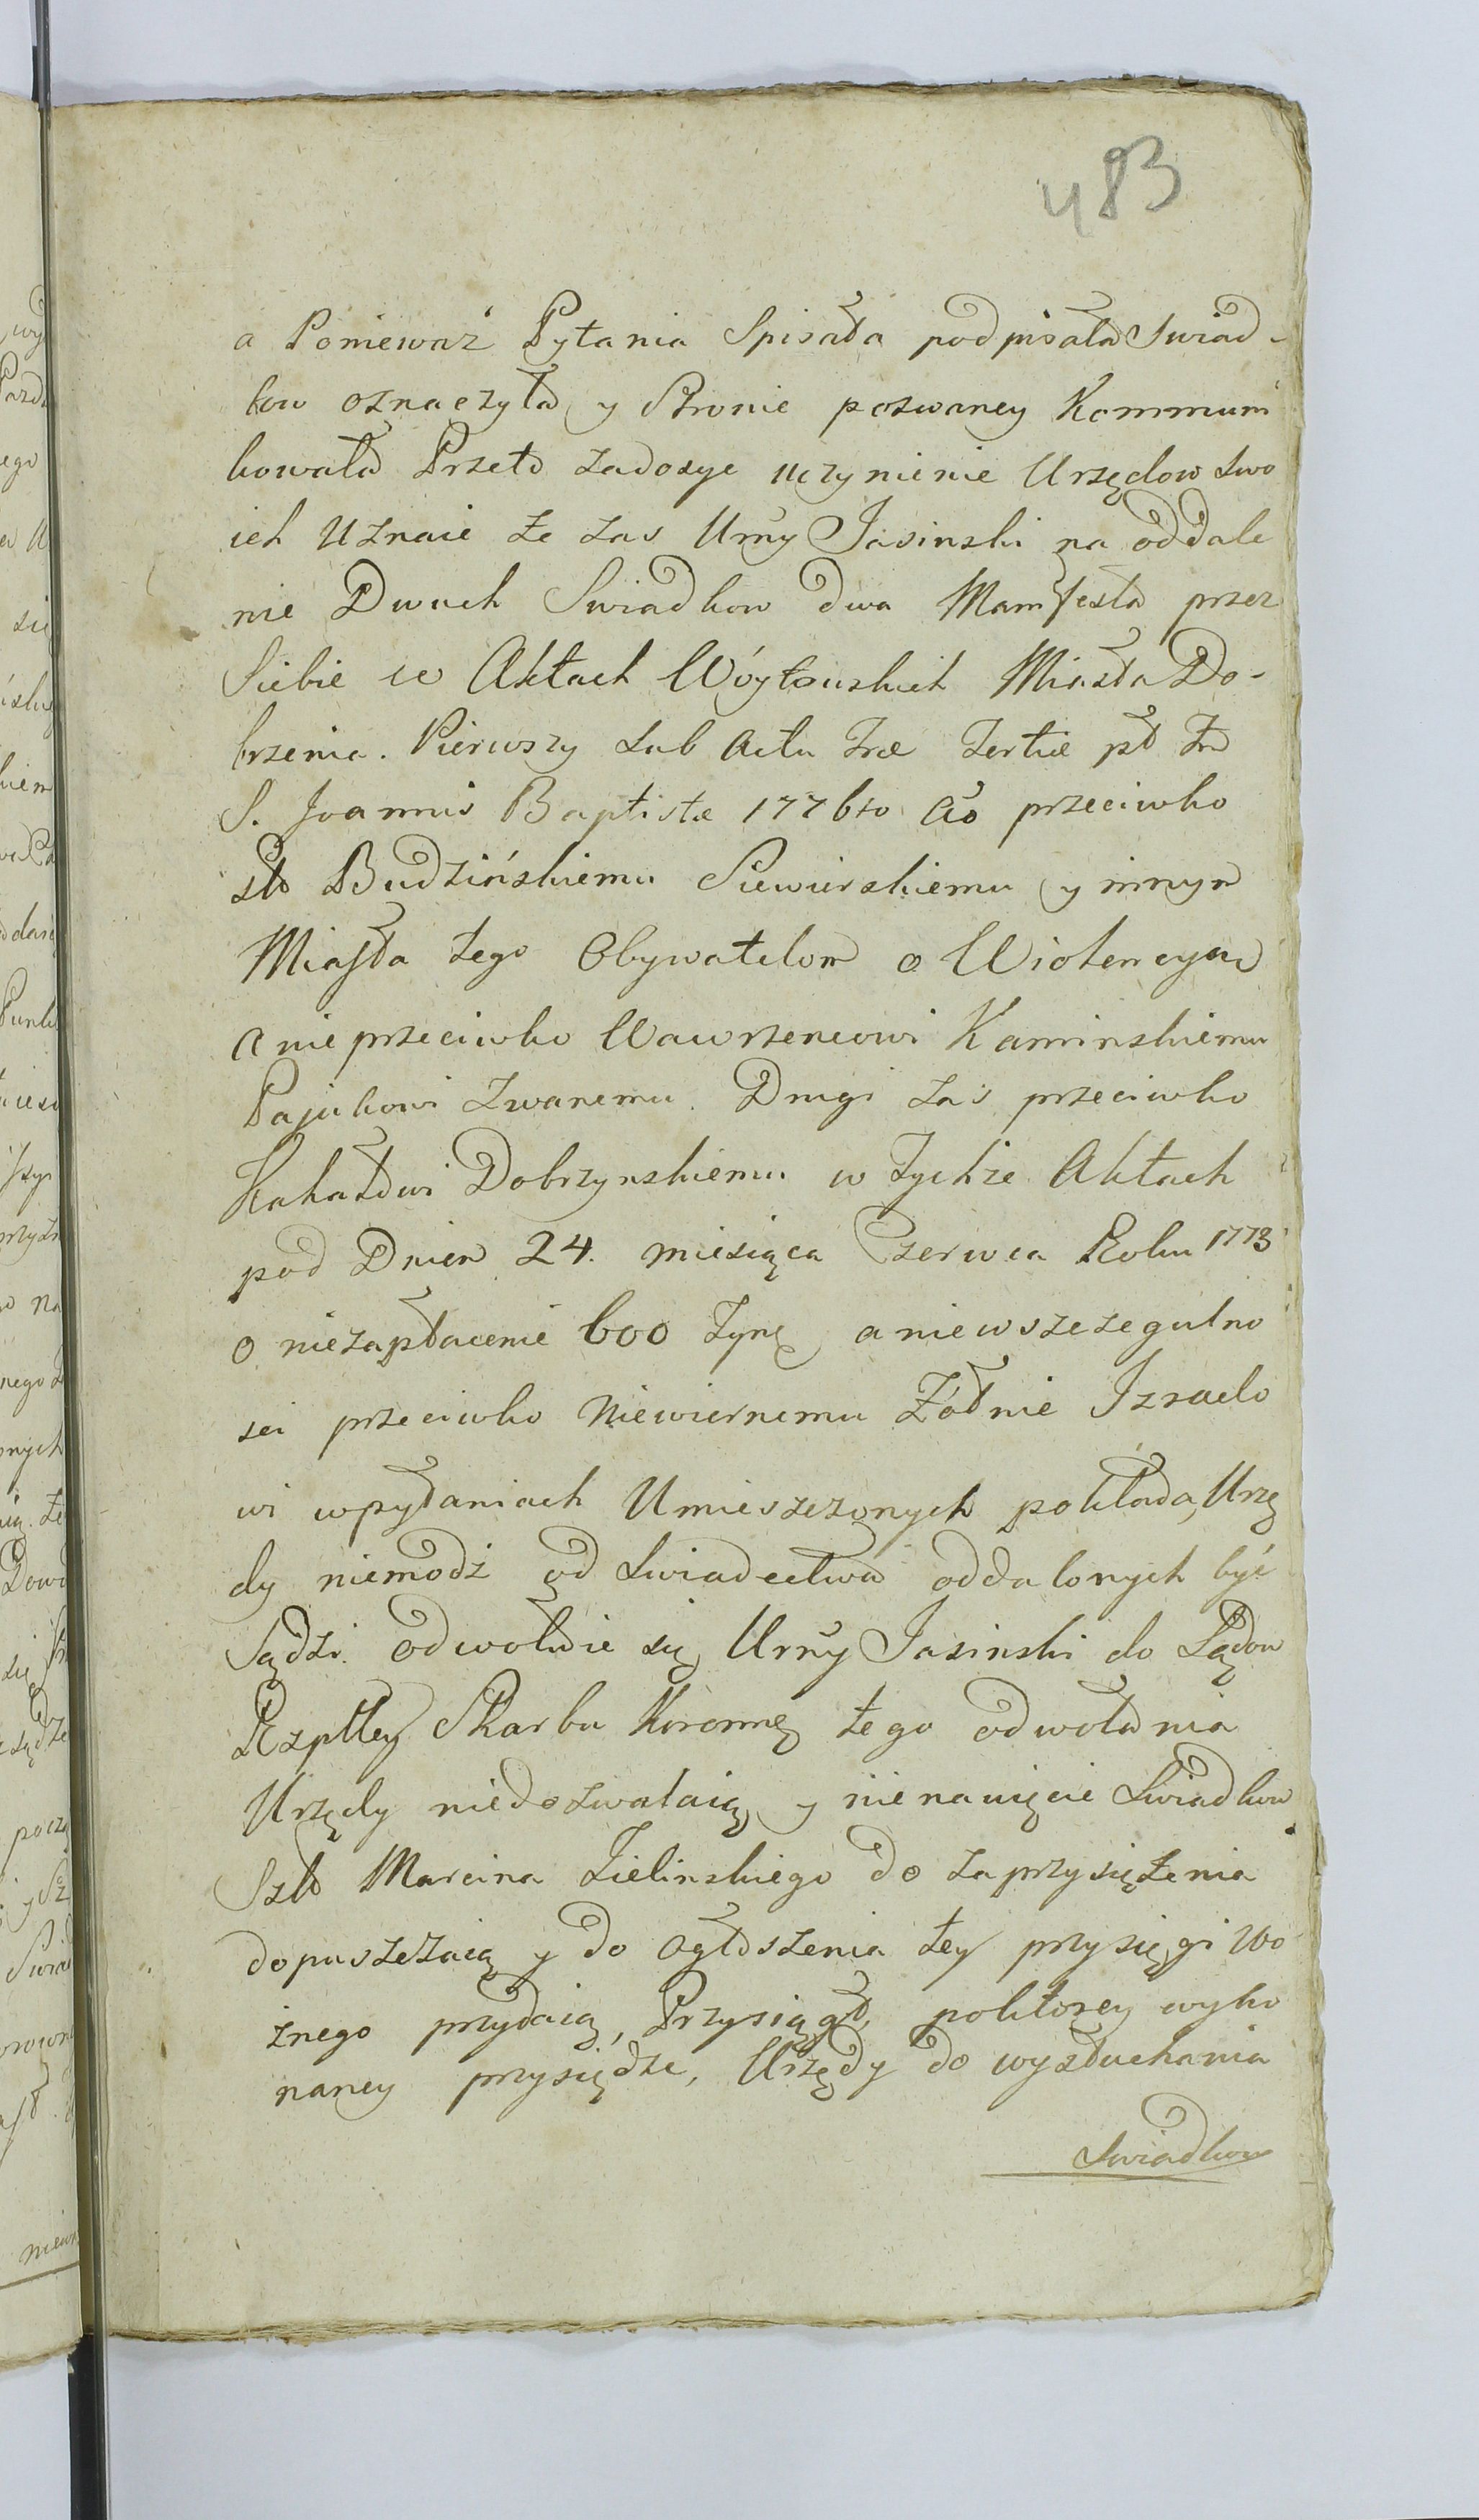 483
a Ponieważ Pytania Spisała podpisała Swiad-
kow oznaczyła y Stronie pozwaney Kommuni
kowała Przeto zadosyc uczynienie Urzędow swo
ich Uznaie ze zas Urny Jasinski na oddale
nie Dwuch Swiadkow dwa Manifesta przez
Siebie w Aktach Wóytowskich Miasta Do-
brzenia. Pierwszy sub Actu Fræ Tertiæ pt Fm
S. Joannis Baptistæ 1776to Ao przeciwko
Sło Budzińskiemu Siewierskiemu y innym
Miasta tego Obywatelom o Wiolencyą
a nie przeciwko Wawrzencowi Kaminskiemu
Pajukowi zwanemu. Drugi zaś przeciwko
Kahałowi Dobrzynskiemu w Tychże Aktach
pod Dniem 24. miesiąca Czerwca Roku 1773
o niezapłacenie 600 Tynę a niewszczegulno
sci przeciwko Niewiernemu Żółnie Izraelo
wi wpytaniach Umieszczonych pokłada, Urzę
dy niemodz od Swiadectwa oddalonych być
Sądzi. odwołuie się Urny Jasinski do Sądow
Rzpltey Skarbu Koronnę tego odwołania
Urzędy niedozwalaią y nienawięcie Swiadkow
Szło Marcina Zielinskiego do zaprzysięzenia
dopuszczaią y do Ogłoszenia tey przysięgi Wo
źnego przydaią, Przysiągł, poktorey wyko
naney przysiędze, Urzędy do wysłuchania
Swiadkow